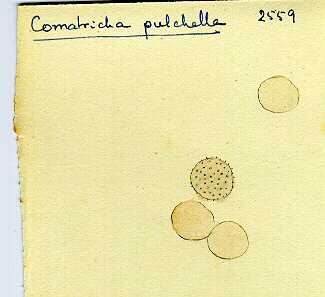 Comatricha pulchella 2559